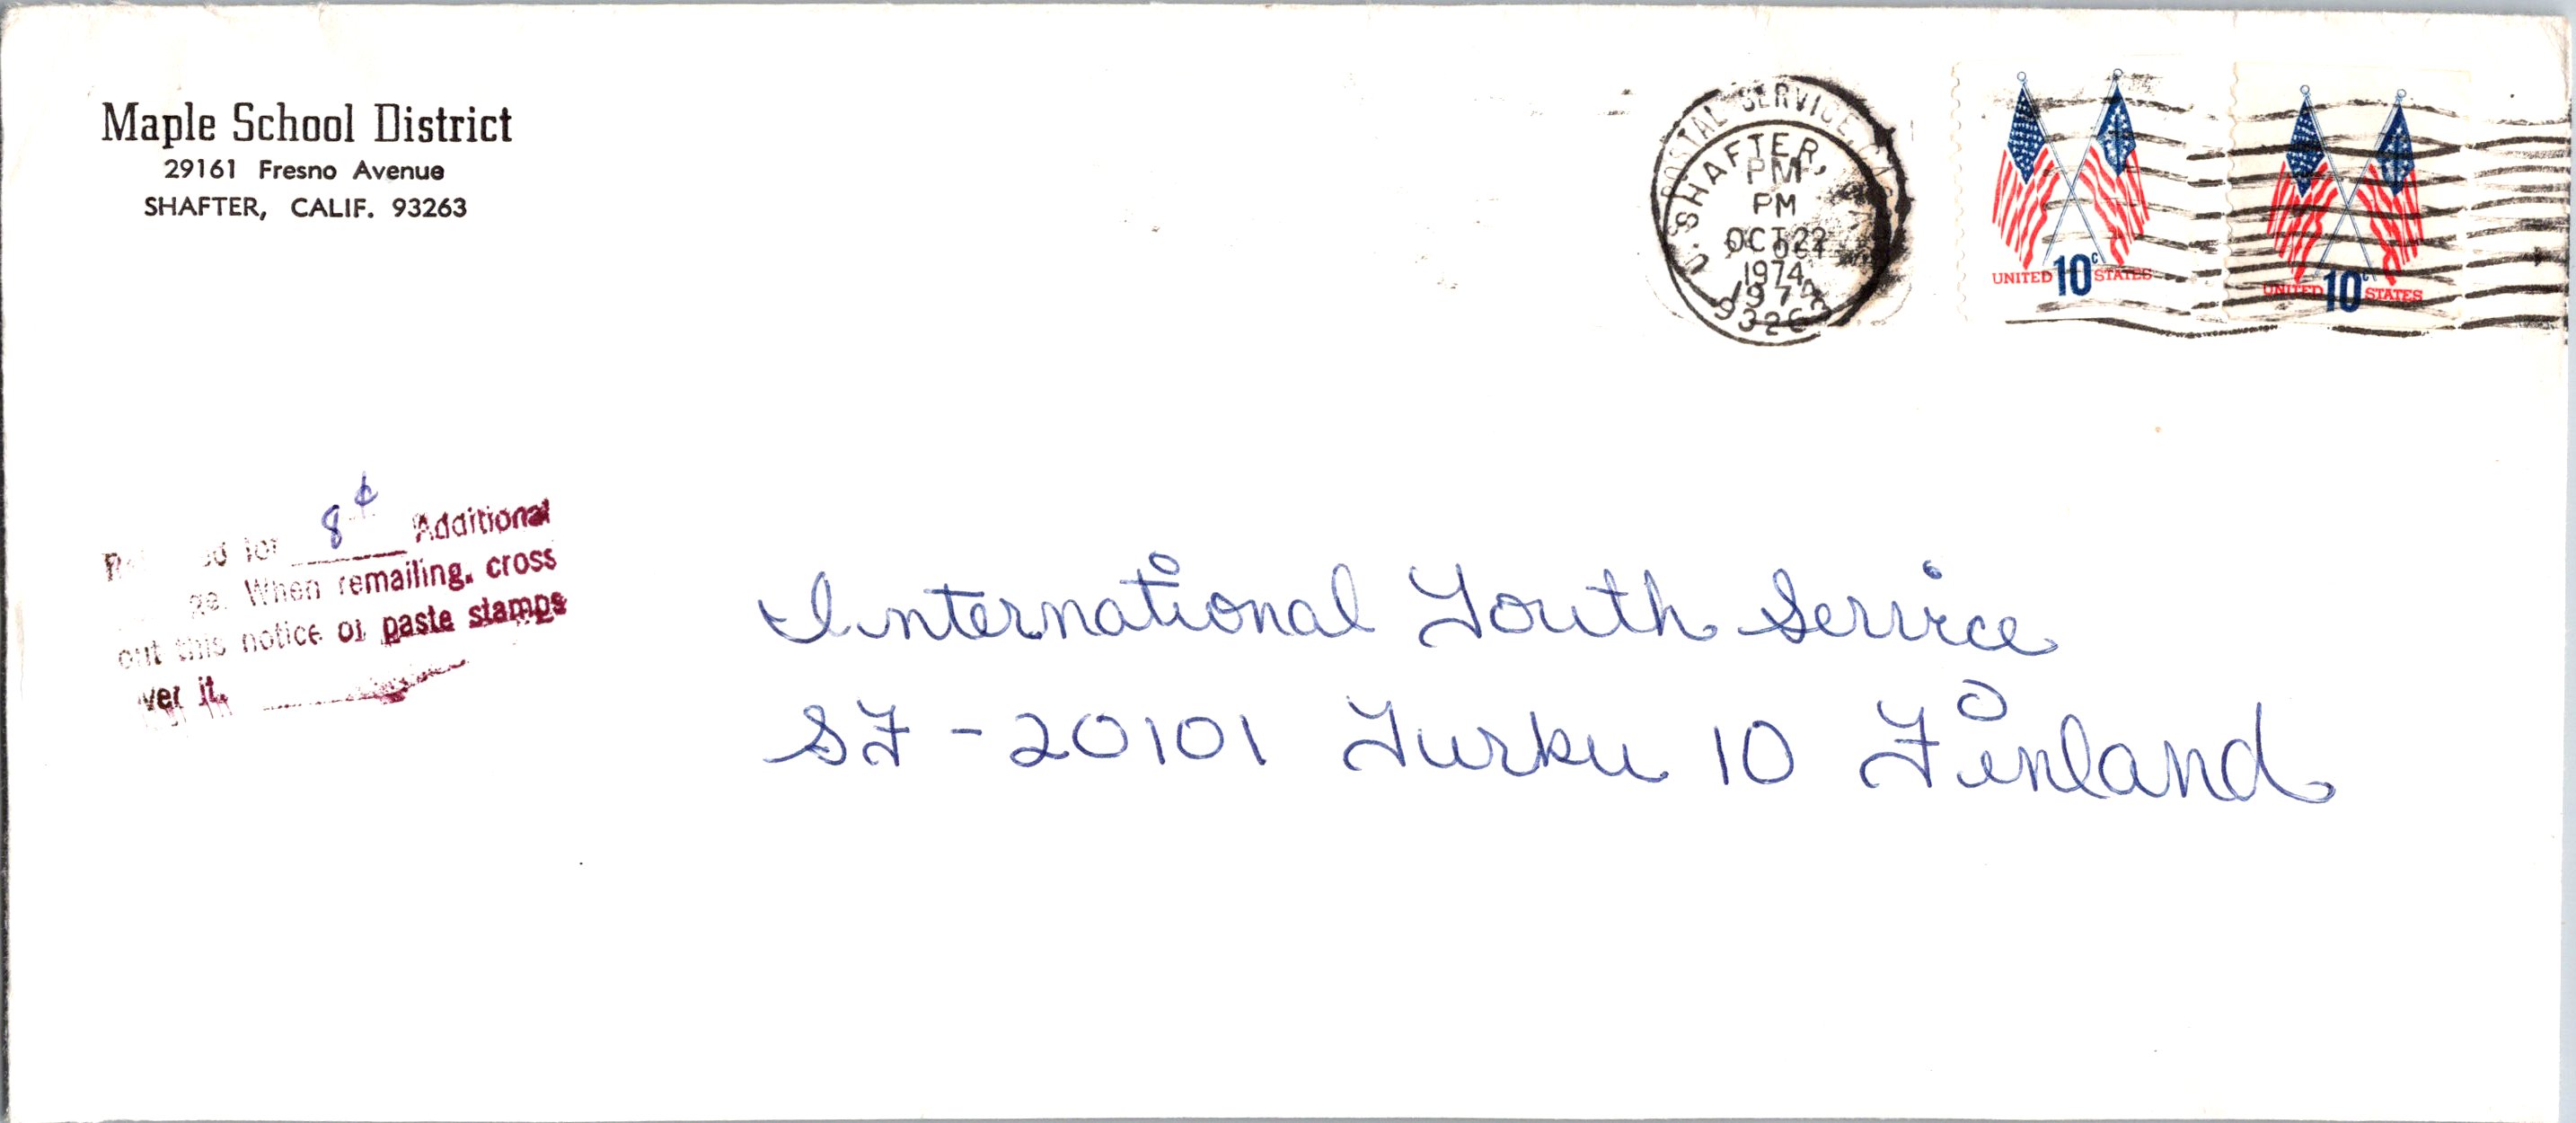 Maple School District
29161 Fresno Avenue
SHAFTER, CALIF. 93263
U.S. POSTAL SERVICE, CA
SHAFTER,
PM
PM
OCT 22
1974
1974
93263
UNITED 10c STATES
UNITED 10c STATES
for 8¢ Additional
When remailing, cross
out this notice or paste stamps
ver it.
International Youth Service
SF - 20101 Turku 10 Finland